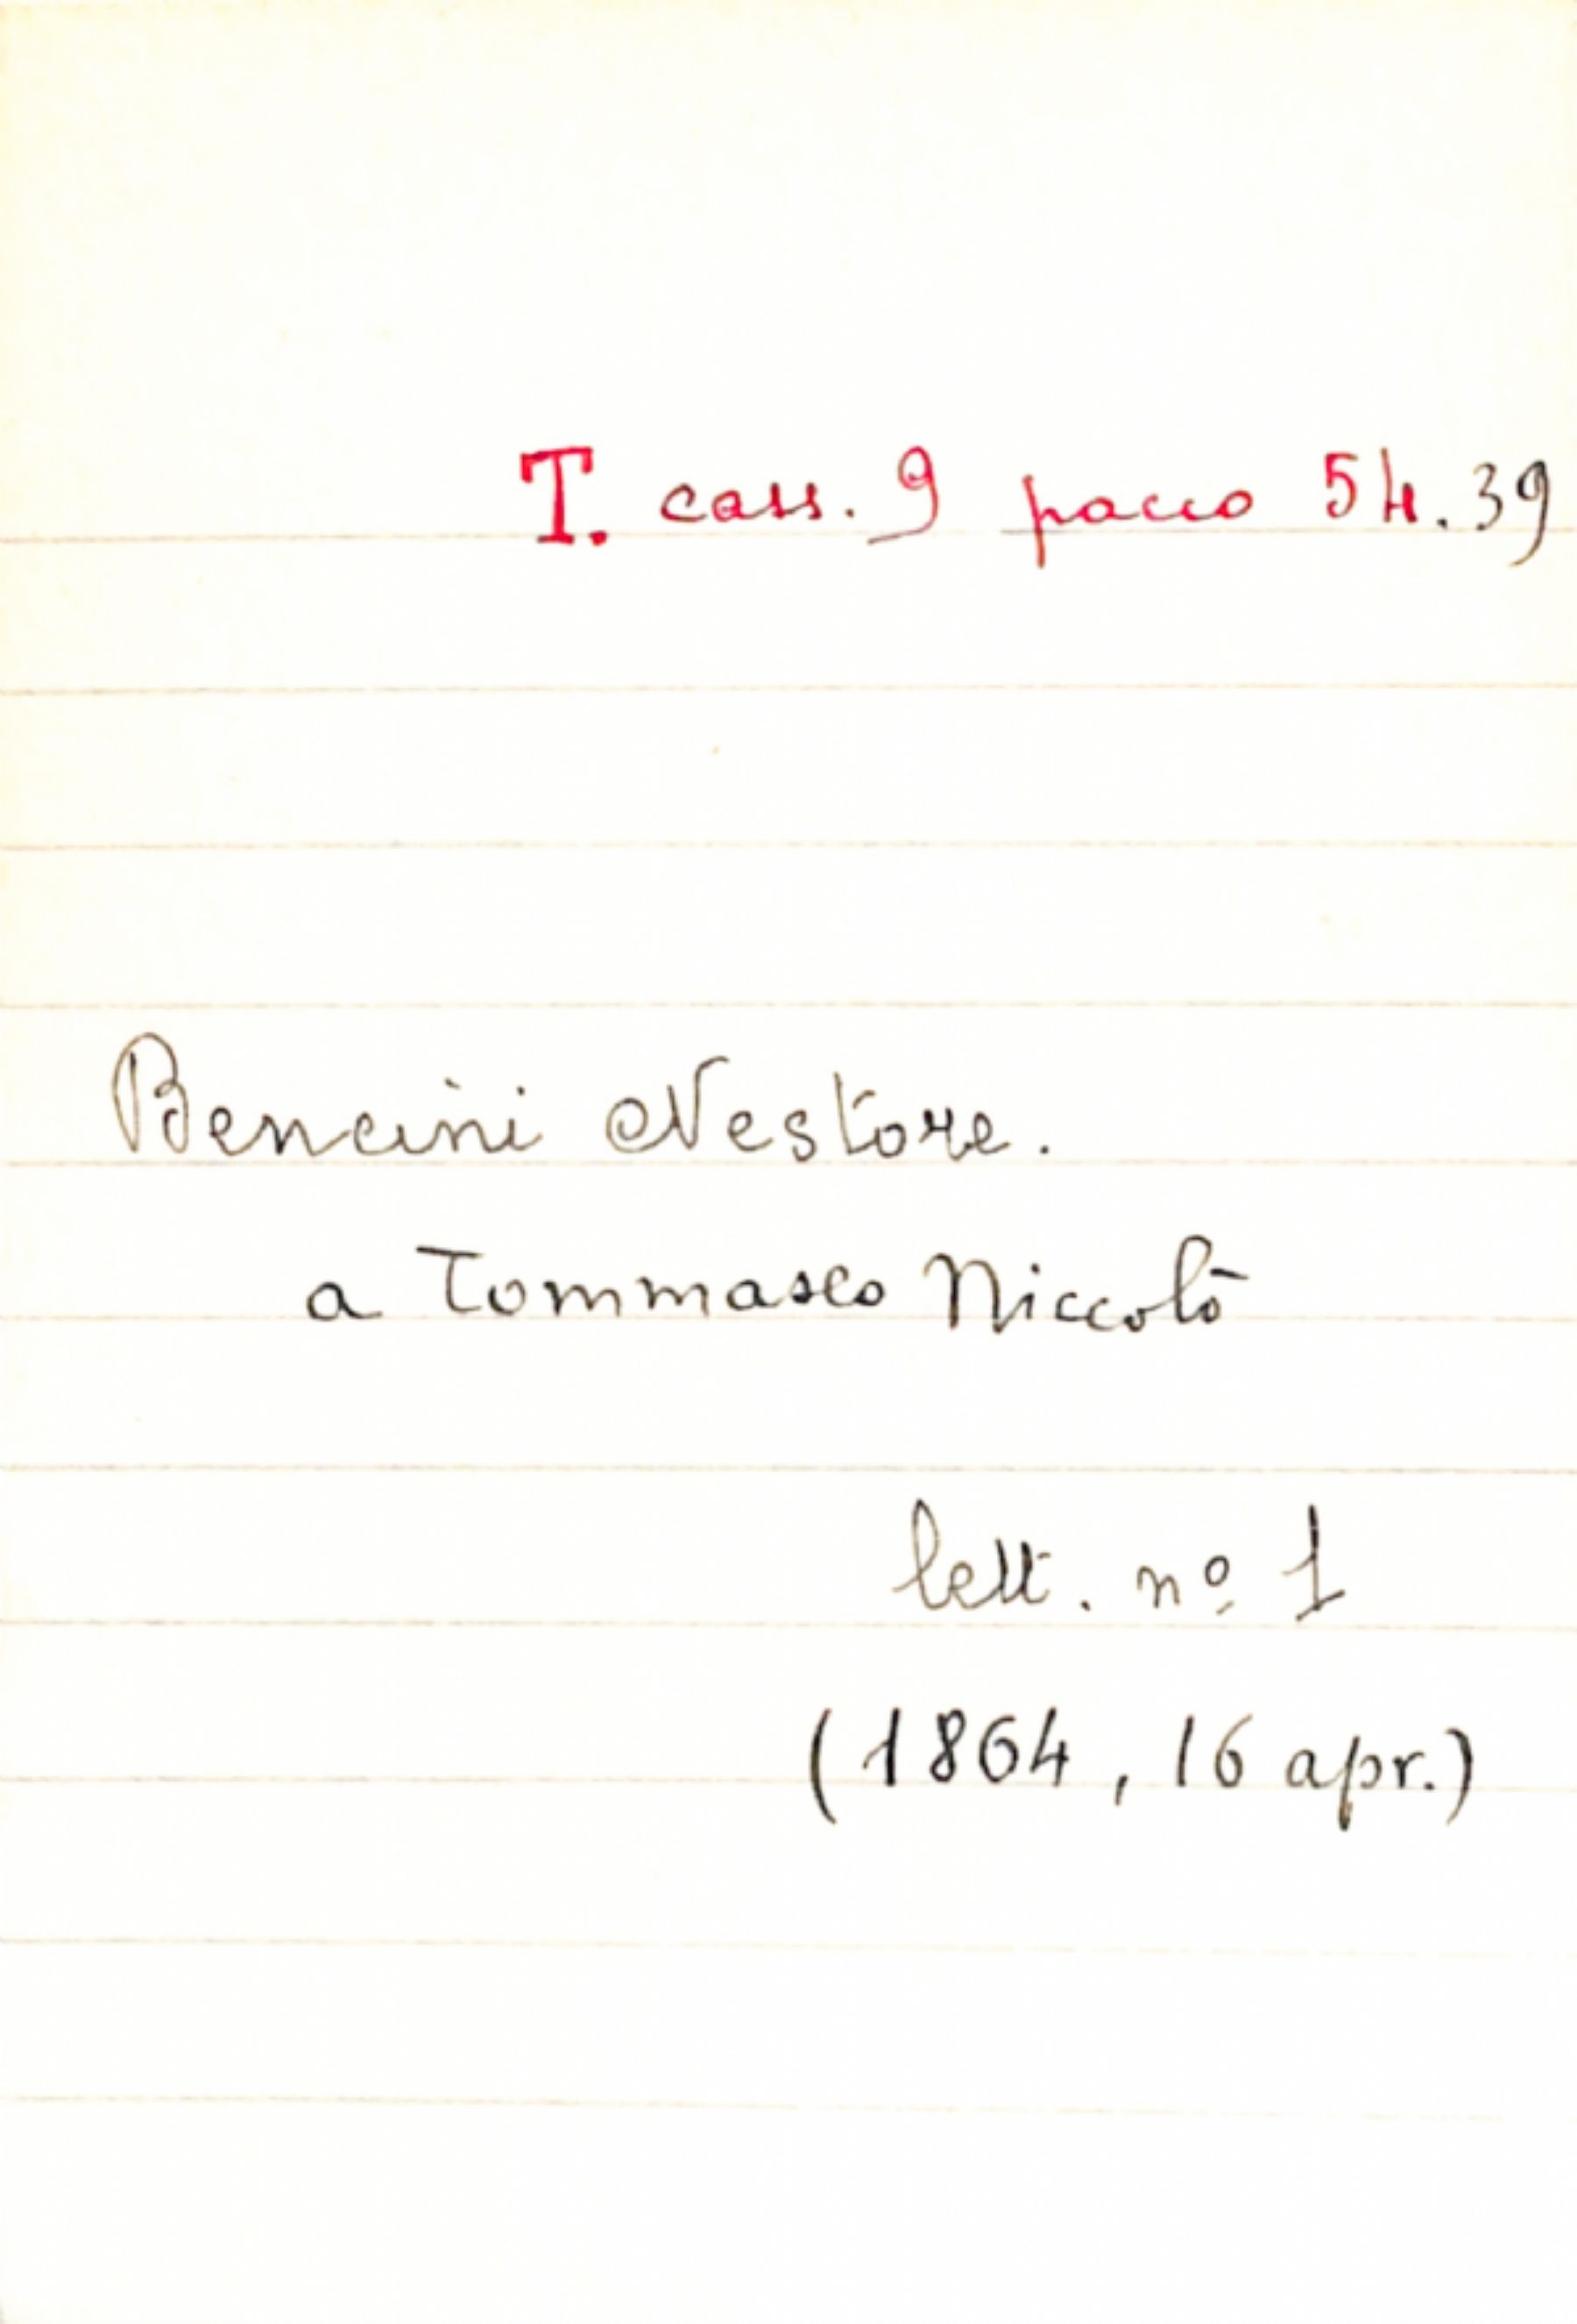 T. cass. 9 pacco 54.39
Bencini Nestore.
a Tommaseo Niccolò
lett. nº 1
(1864, 16 apr.)